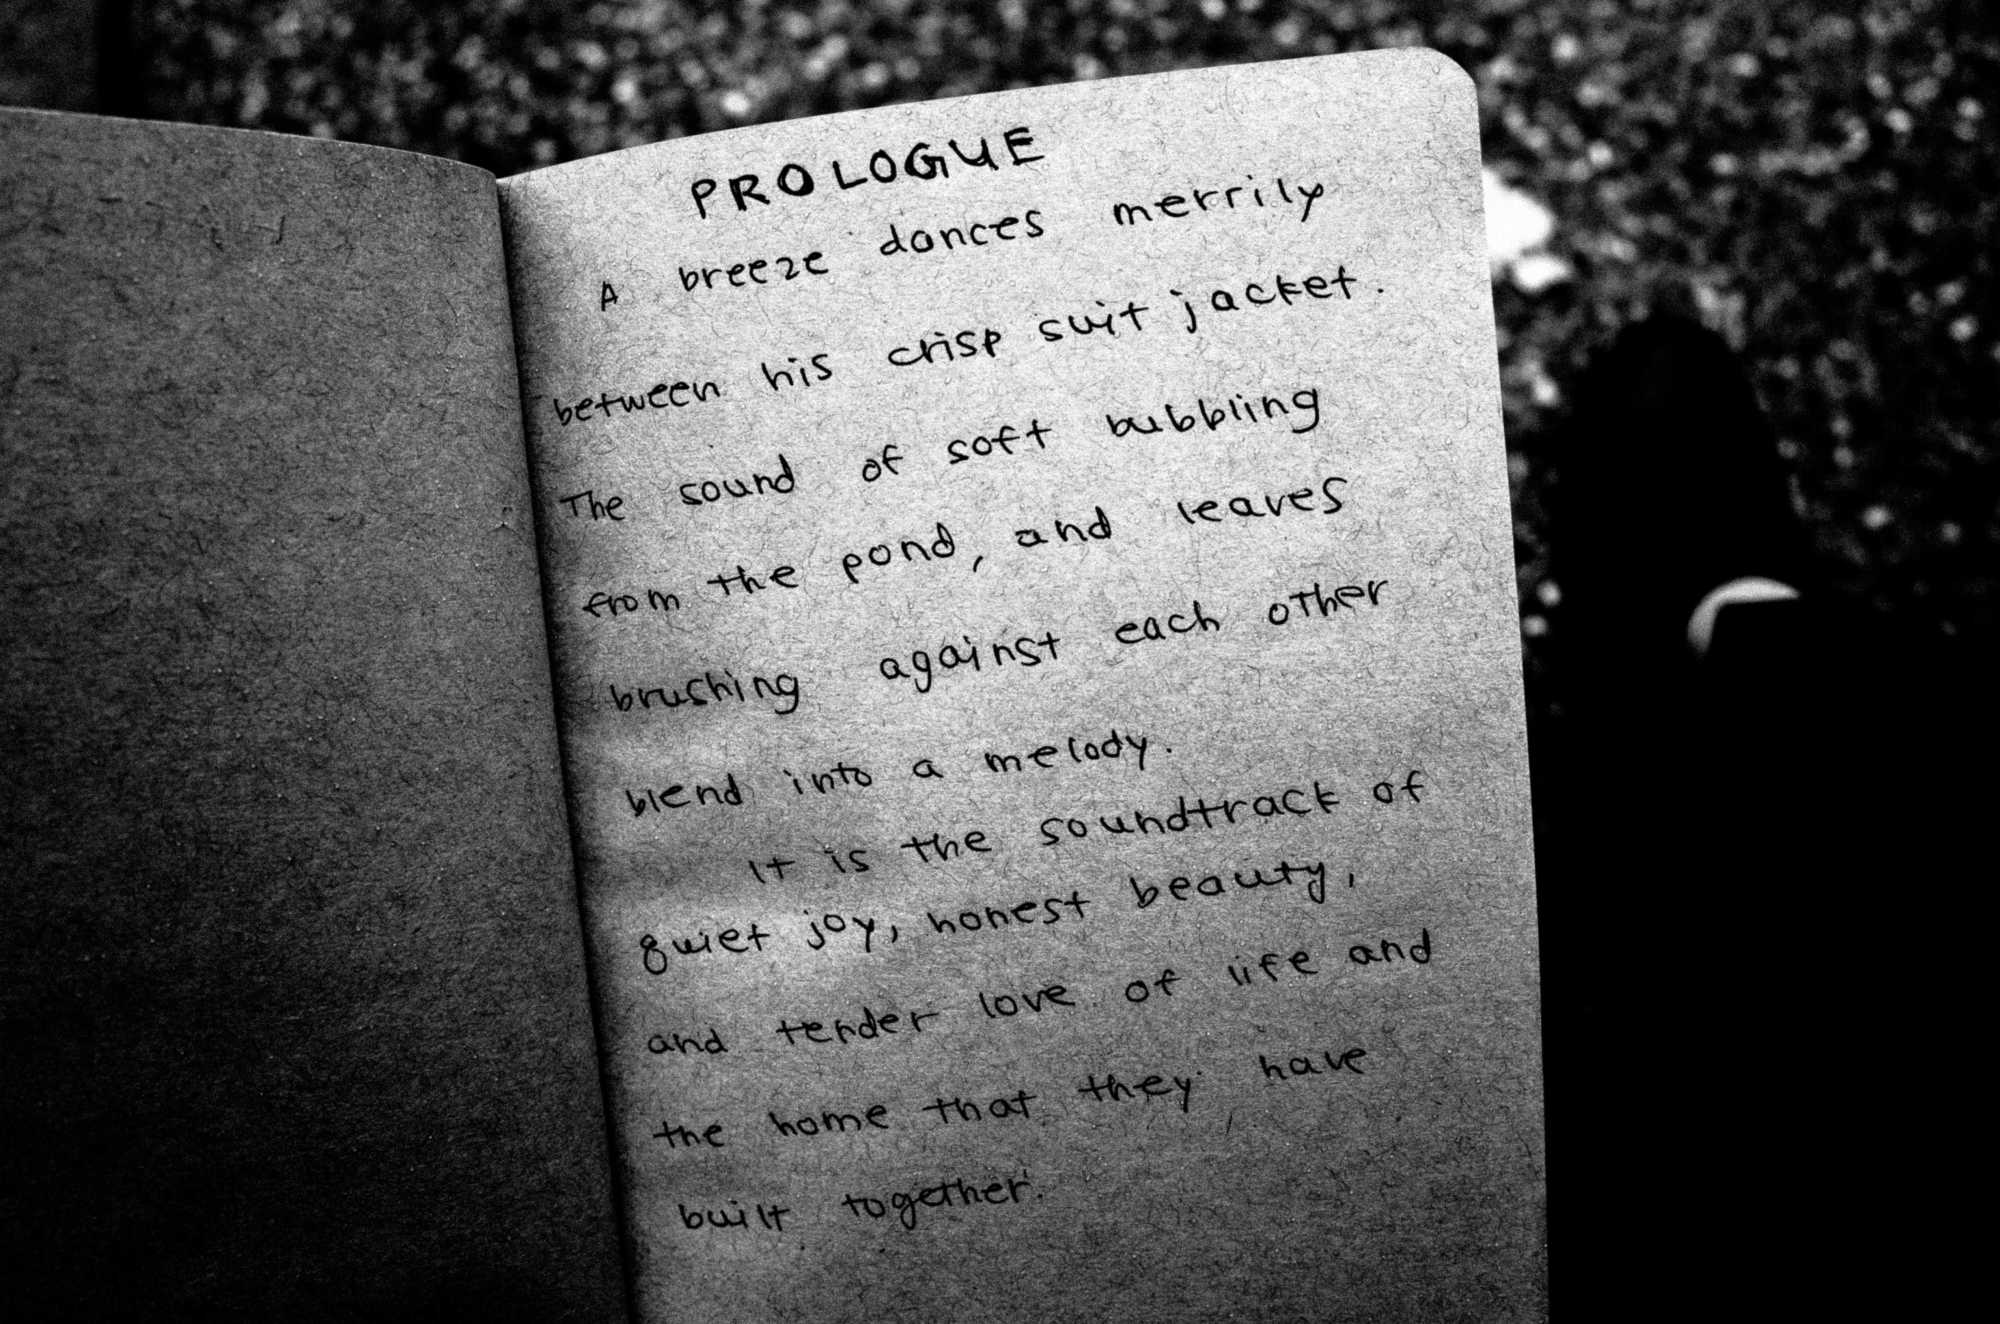 PROLOGUE
A breeze dances merrily
between his crisp suit jacket.
The sound of soft bubbling
from the pond, and leaves
brushing against each other
blend into a melody.
It is the soundtrack of
quiet joy, honest beauty,
and tender love of life and
the home that they have
built together.